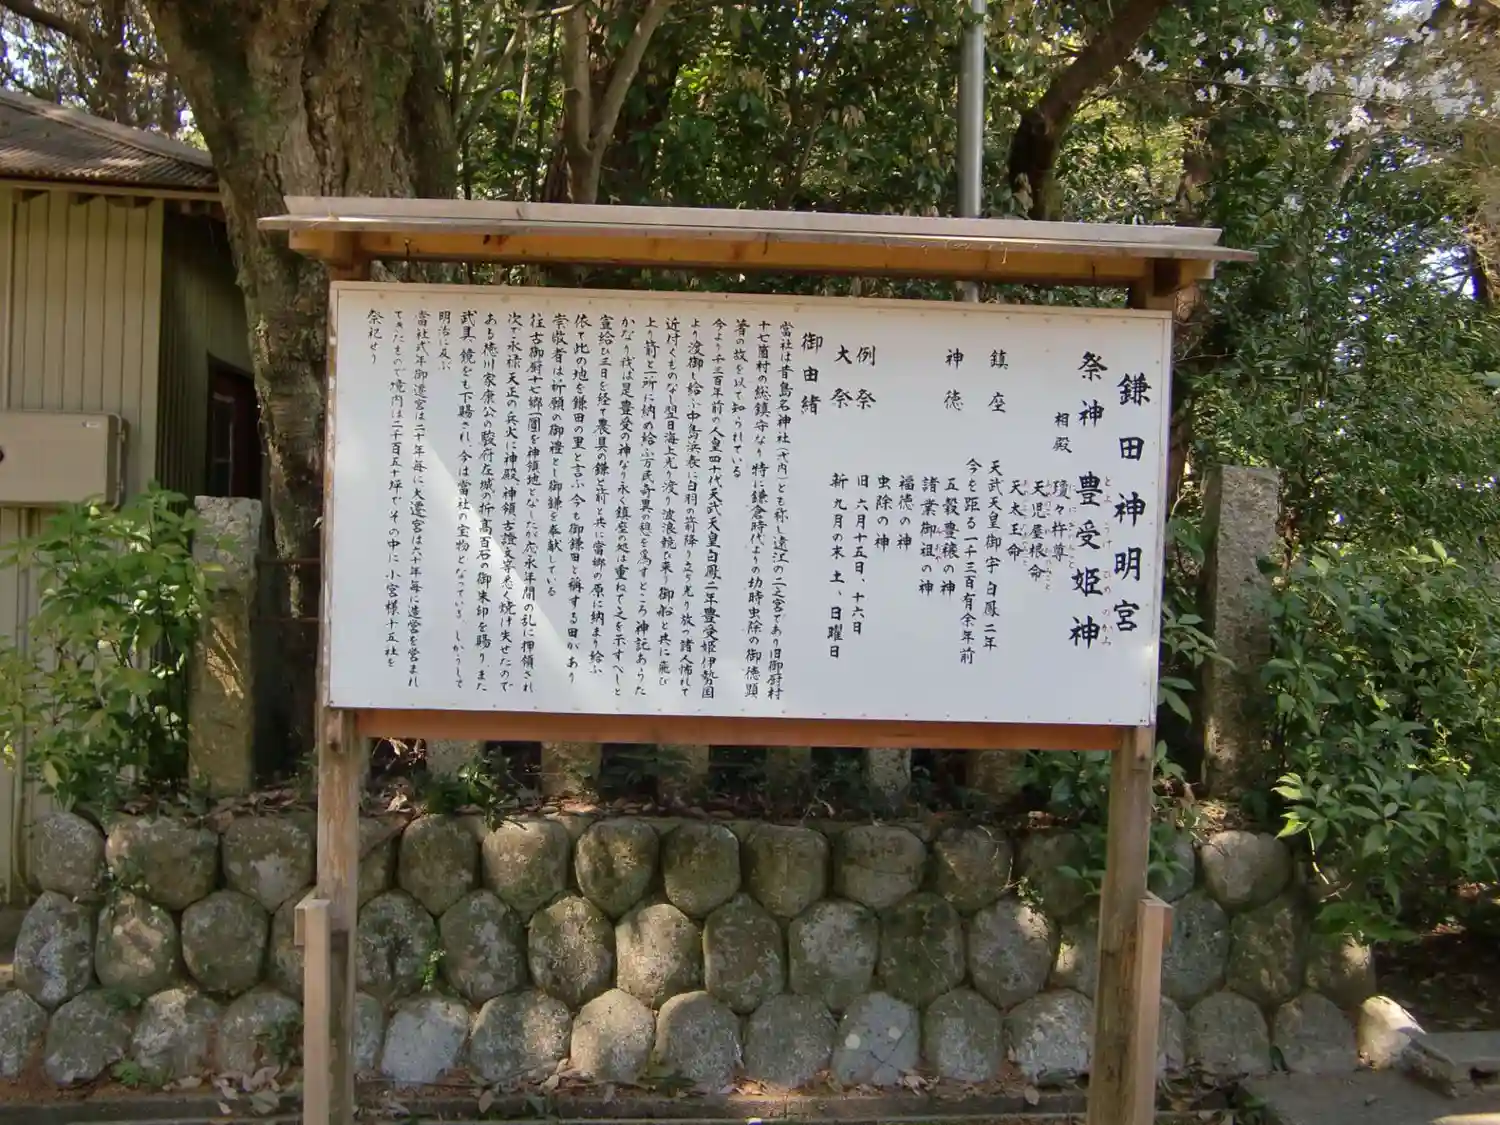 鎌田神明宮
祭神 豊受姫神
とようけびめのかみ
相殿 瓊々杵尊
天児屋根命
天太玉命
鎮座 天武天皇御宇 白鳳二年
今を距る一千三百有余年前
神徳 五穀豊穣の神
諸業御祖の神
福徳の神
虫除の神
例祭 旧六月十五日、十六日
大祭 新九月の末土、日曜日
御由緒
當社は昔島名神社(式内)とも称し遠江の二之宮であり旧御厨村
十七箇村の総鎮守なり特に鎌倉時代よりの幼時虫除の御徳顕
著の故を以て知られている
今より千三百年前の人皇四十代天武天皇白鳳二年豊受姫伊勢国
より渡御し給ふ中島浜表に白羽の箭降り立ち光り放つ諸人怖れて
近付くものなし翌日海上光り渡り波浪鏡ひ来り御船と共に飛び
上り箭と一所に納め給ふ万民奇異の想を為すところ神託あらた
かなり我は是豊受の神なり永く鎮座の処は重ねて之を示すべしと
宣給ひ三日を経て農具の鎌と箭と共に當郷の原に納まり給ふ
依て此の地を鎌田の里と言ふ今も御鎌田と稱する田があり
崇敬者は祈願の御禮とし御鎌を奉献している
往古御厨十七郷一圓を神領地となしたが應永年間の乱に押領され
次で永禄天正の兵火に神殿神領古證文等悉く焼け失せたので
ある徳川家康公の駿付左城の折高百石の御朱印を賜りまた
武具 鏡をも下賜され、今は當社の宝物となっている、しかうして
明治に及ぶ
當社式年御遷宮は二十年毎に大遷宮は六十年毎に造営を営まれ
てきたもので境内は二千百五十坪でその中に小宮様十五社を
祭祀せり